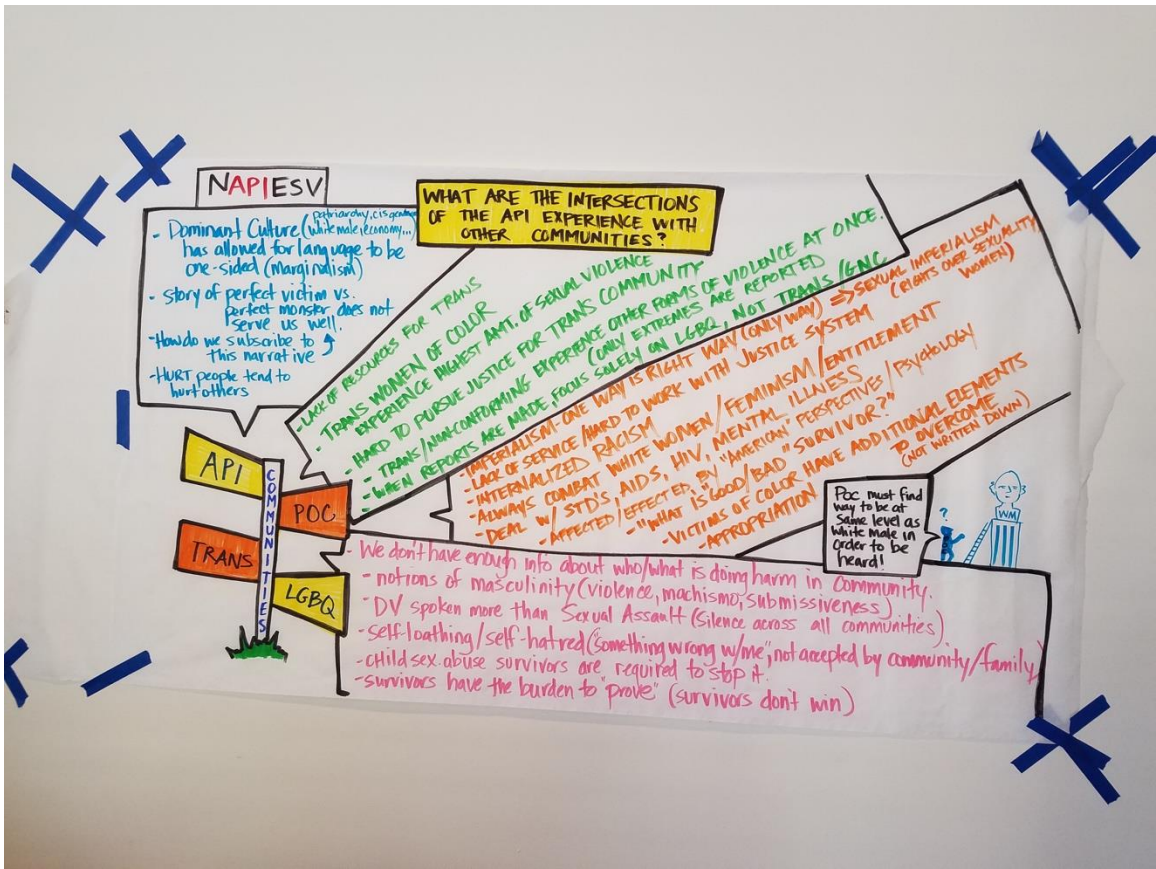 NAPIESV
- Dominant Culture (patriarchy, cisgender, white male, economy...)
has allowed for language to be
one-sided (marginalism)
- story of perfect victim vs.
perfect monster does not
serve us well.
- How do we subscribe to
this narrative
- HURT people tend to
hurt others
WHAT ARE THE INTERSECTIONS
OF THE API EXPERIENCE WITH
OTHER COMMUNITIES?
- LACK OF RESOURCES FOR TRANS
TRANS WOMEN OF COLOR
EXPERIENCE HIGHEST AMT. OF SEXUAL VIOLENCE
- HARD TO PURSUE JUSTICE FOR TRANS COMMUNITY
- TRANS/NON-CONFORMING EXPERIENCE OTHER FORMS OF VIOLENCE AT ONCE.
(ONLY EXTREMES ARE REPORTED
- WHEN REPORTS ARE MADE, FOCUS SOLELY ON LGBQ, NOT TRANS/GNC
- IMPERIALISM - ONE WAY IS RIGHT WAY (ONLY WAY) => SEXUAL IMPERIALISM
(RIGHTS OVER SEXUALITY,
WOMEN)
- LACK OF SERVICE/HARD TO WORK WITH JUSTICE SYSTEM
- INTERNALIZED RACISM
- ALWAYS COMBAT WHITE WOMEN/FEMINISM/ENTITLEMENT
- DEAL W/ STD'S, AIDS, HIV, MENTAL ILLNESS
- AFFECTED/EFFECTED, BY "AMERICAN" PERSPECTIVES/PSYCHOLOGY
- "WHAT IS GOOD/BAD" SURVIVOR?"
- VICTIMS OF COLOR HAVE ADDITIONAL ELEMENTS
TO OVERCOME
(NOT WRITTEN DOWN)
- APPROPRIATION
API
POC
TRANS
LGBQ
COMMUNITIES
POC must find
way to be at
same level as
white male in
order to be
heard!
?
WM
- We don't have enough info about who/what is doing harm in community.
- notions of masculinity (violence, machismo, submissiveness)
- DV spoken more than Sexual Assault (Silence across all communities)
- self-loathing/self-hatred ("something wrong w/me", not accepted by community/family)
- child sex abuse survivors are required to stop it.
- survivors have the burden to "prove" (survivors don't win)